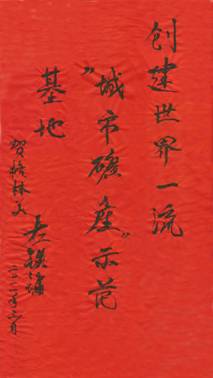 创建世界一流
“城市矿产”示范
基地
贺格林美
左铁镛
二〇一一年三月